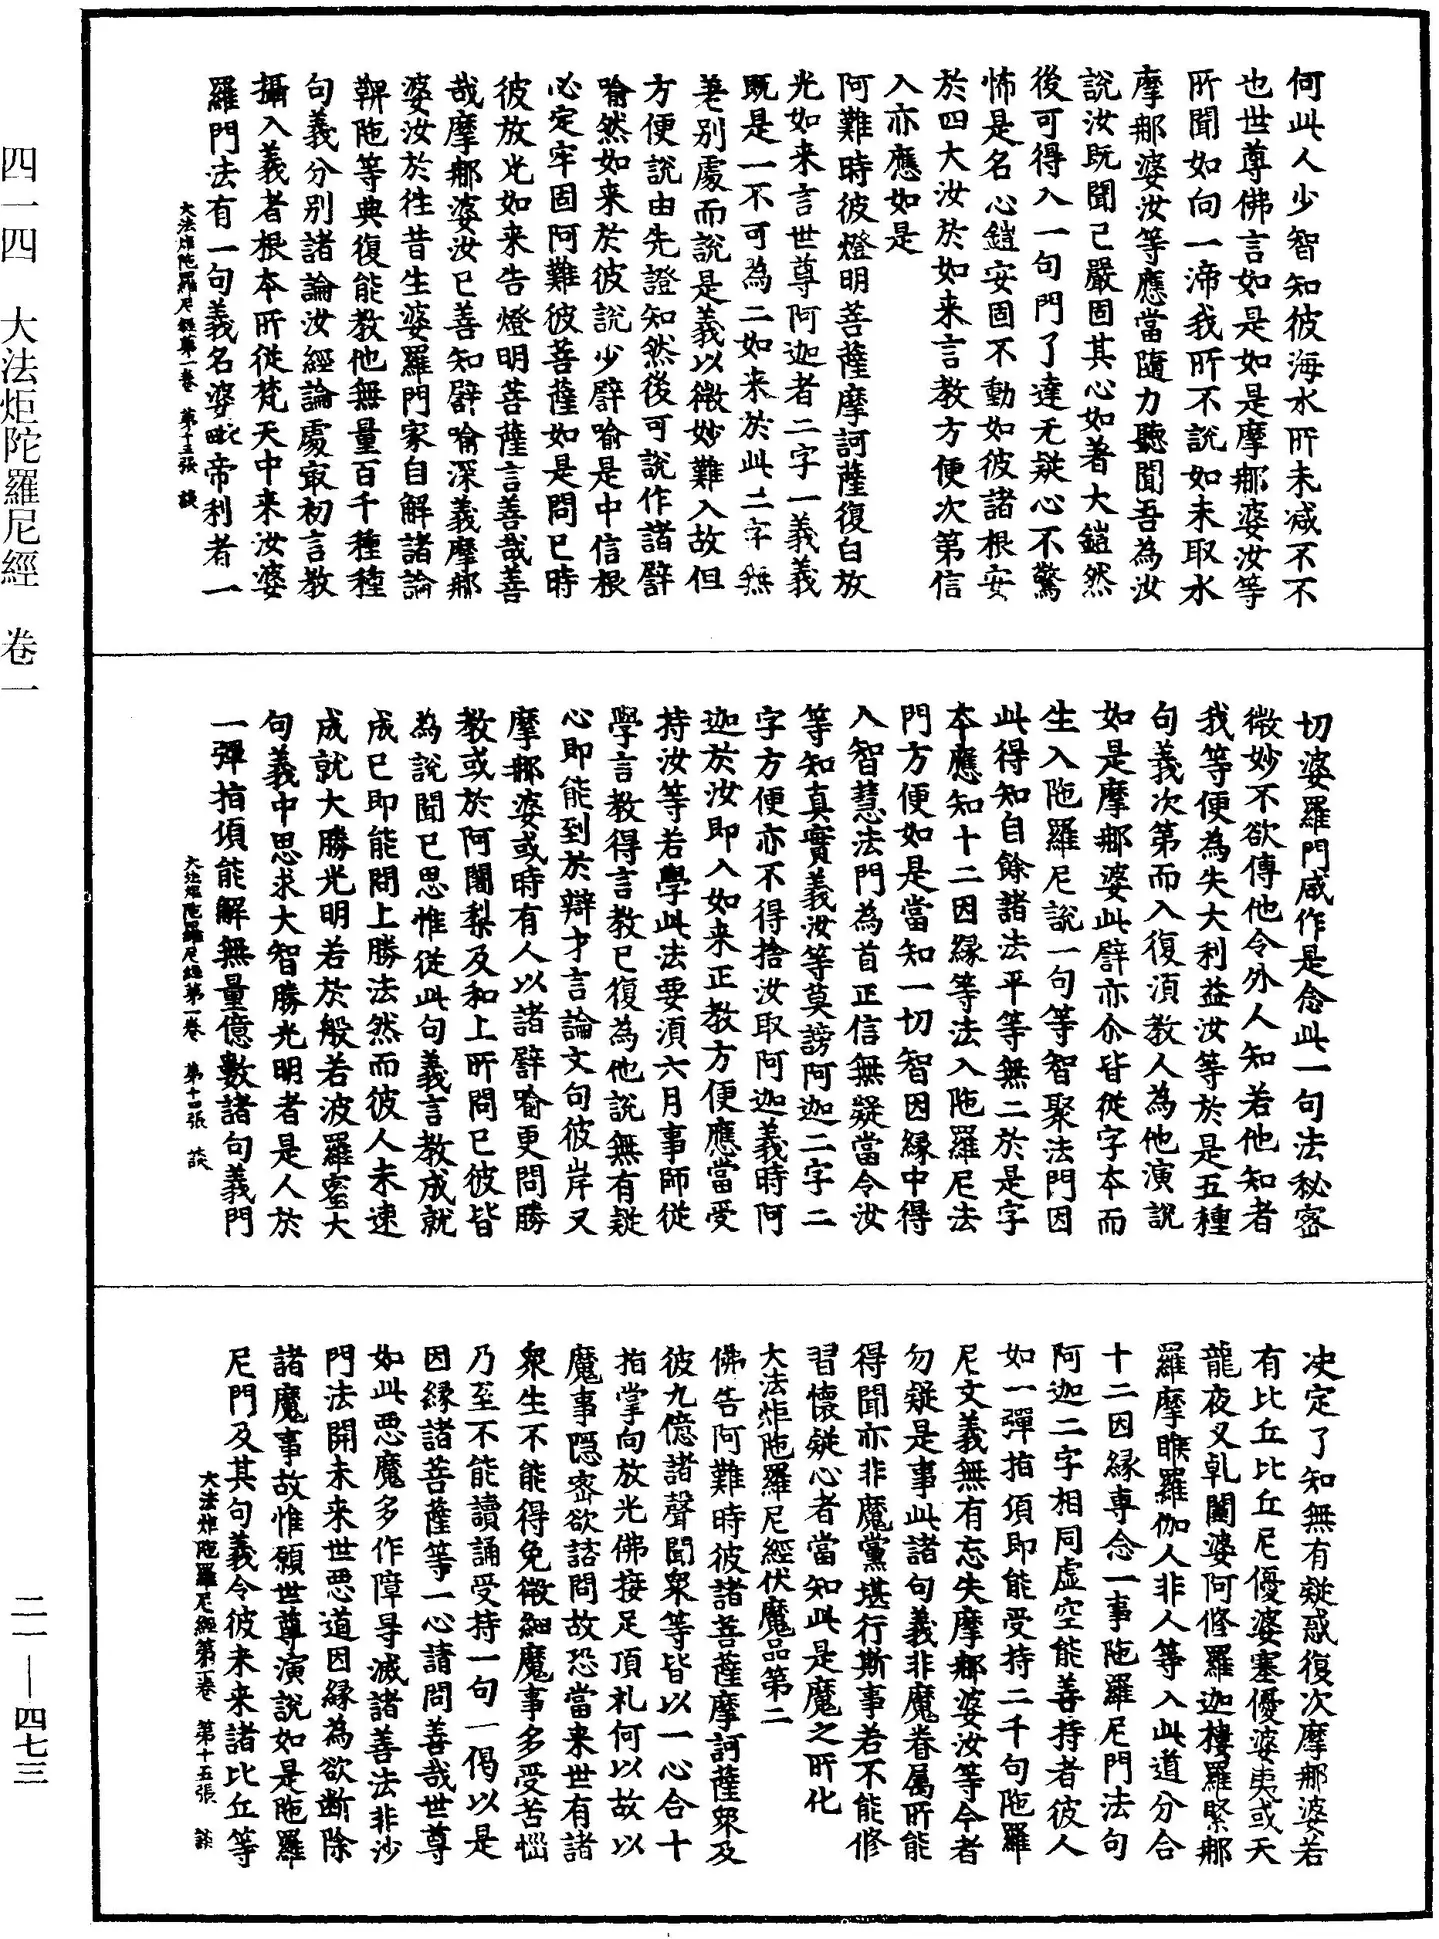 何此人少智知彼海水所未减不不
也世尊佛言如是如是摩那婆汝等
所聞如向一渧我所不說如未取水
摩那婆汝等應當隨力聽聞吾為汝
說汝既聞已嚴固其心如著大鎧然
後可得入一句門了達无疑心不驚
怖是名心鎧安固不動如彼諸根安
於四大汝於如来言教方便次第信
入亦應如是
阿難時彼燈明菩薩摩訶薩復白放
光如来言世尊阿迦者二字一義義
既是一不可為二如来於此二字無
差別處而說是義以微妙難入故但
方便說由先證知然後可說作諸譬
喻然如来於彼說少譬喻是中信根
必定牢固阿難彼菩薩如是問已時
彼放光如来告燈明菩薩言善哉善
哉摩那婆汝已善知譬喻深義摩那
婆汝於往昔生婆羅門家自解諸論
鞞陁等典復能教他無量百千種種
句義分別諸論汝經論處冣初言教
攝入義者根本所従梵天中来汝婆
羅門法有一句義名婆毗帝利者一
大法炬陁羅尼經第一卷 第十五張 談
切婆羅門咸作是念此一句法秘密
微妙不欲傳他令外人知若他知者
我等便為失大利益汝等於是五種
句義次第而入復湏教人為他演說
如是摩那婆此譬亦尒皆従字本而
生入陁羅尼說一句等智聚法門因
此得知自餘諸法平等無二於是字
本應知十二因縁等法入陁羅尼法
門方便如是當知一切智因縁中得
入智慧法門為首正信無疑當令汝
等知真實義汝等莫謗阿迦二字二
字方便亦不得捨汝取阿迦義時阿
迦於汝即入如来正教方便應當受
持汝等若學此法要湏六月事師従
學言教得言教已復為他說無有疑
心即能到於辯才言論文句彼岸又
摩那婆或時有人以諸譬喻更問勝
教或於阿闍梨及和上所問已彼皆
為說聞已思惟従此句義言教成就
成已即能問上勝法然而彼人未速
成就大勝光明若於般若波羅蜜大
句義中思求大智勝光明者是人於
一彈指頃能解無量億數諸句義門
大法炬陁羅尼經第一卷 第十四張 談
决定了知無有疑惑復次摩那婆若
有比丘比丘尼優婆塞優婆夷或天
龍夜叉乹闥婆阿修羅迦樓羅緊那
羅摩睺羅伽人非人等入此道分合
十二因縁専念一事陁羅尼門法句
阿迦二字相同虛空能善持者彼人
如一彈指頃即能受持二千句陁羅
尼文義無有忘失摩那婆汝等今者
勿疑是事此諸句義非魔眷属所能
得聞亦非魔黨堪行斯事若不能修
習懷疑心者當知此是魔之所化
大法炬陁羅尼經伏魔品第二
佛告阿難時彼諸菩薩摩訶薩衆及
彼九億諸聲聞衆等皆以一心合十
指掌向放光佛接足頂礼何以故以
魔事隱密欲諮問故恐當来世有諸
衆生不能得免微細魔事多受苦惱
乃至不能讀誦受持一句一偈以是
因縁諸菩薩等一心請問善哉世尊
如此惡魔多作障㝵滅諸善法非沙
門法開未来世惡道因縁為欲断除
諸魔事故惟願世尊演說如是陁羅
尼門及其句義令彼未来諸比丘等
大法炬陁羅尼經第一卷 第十五張 談
四一四 大法炬陀羅尼經 卷一
二一—四七三